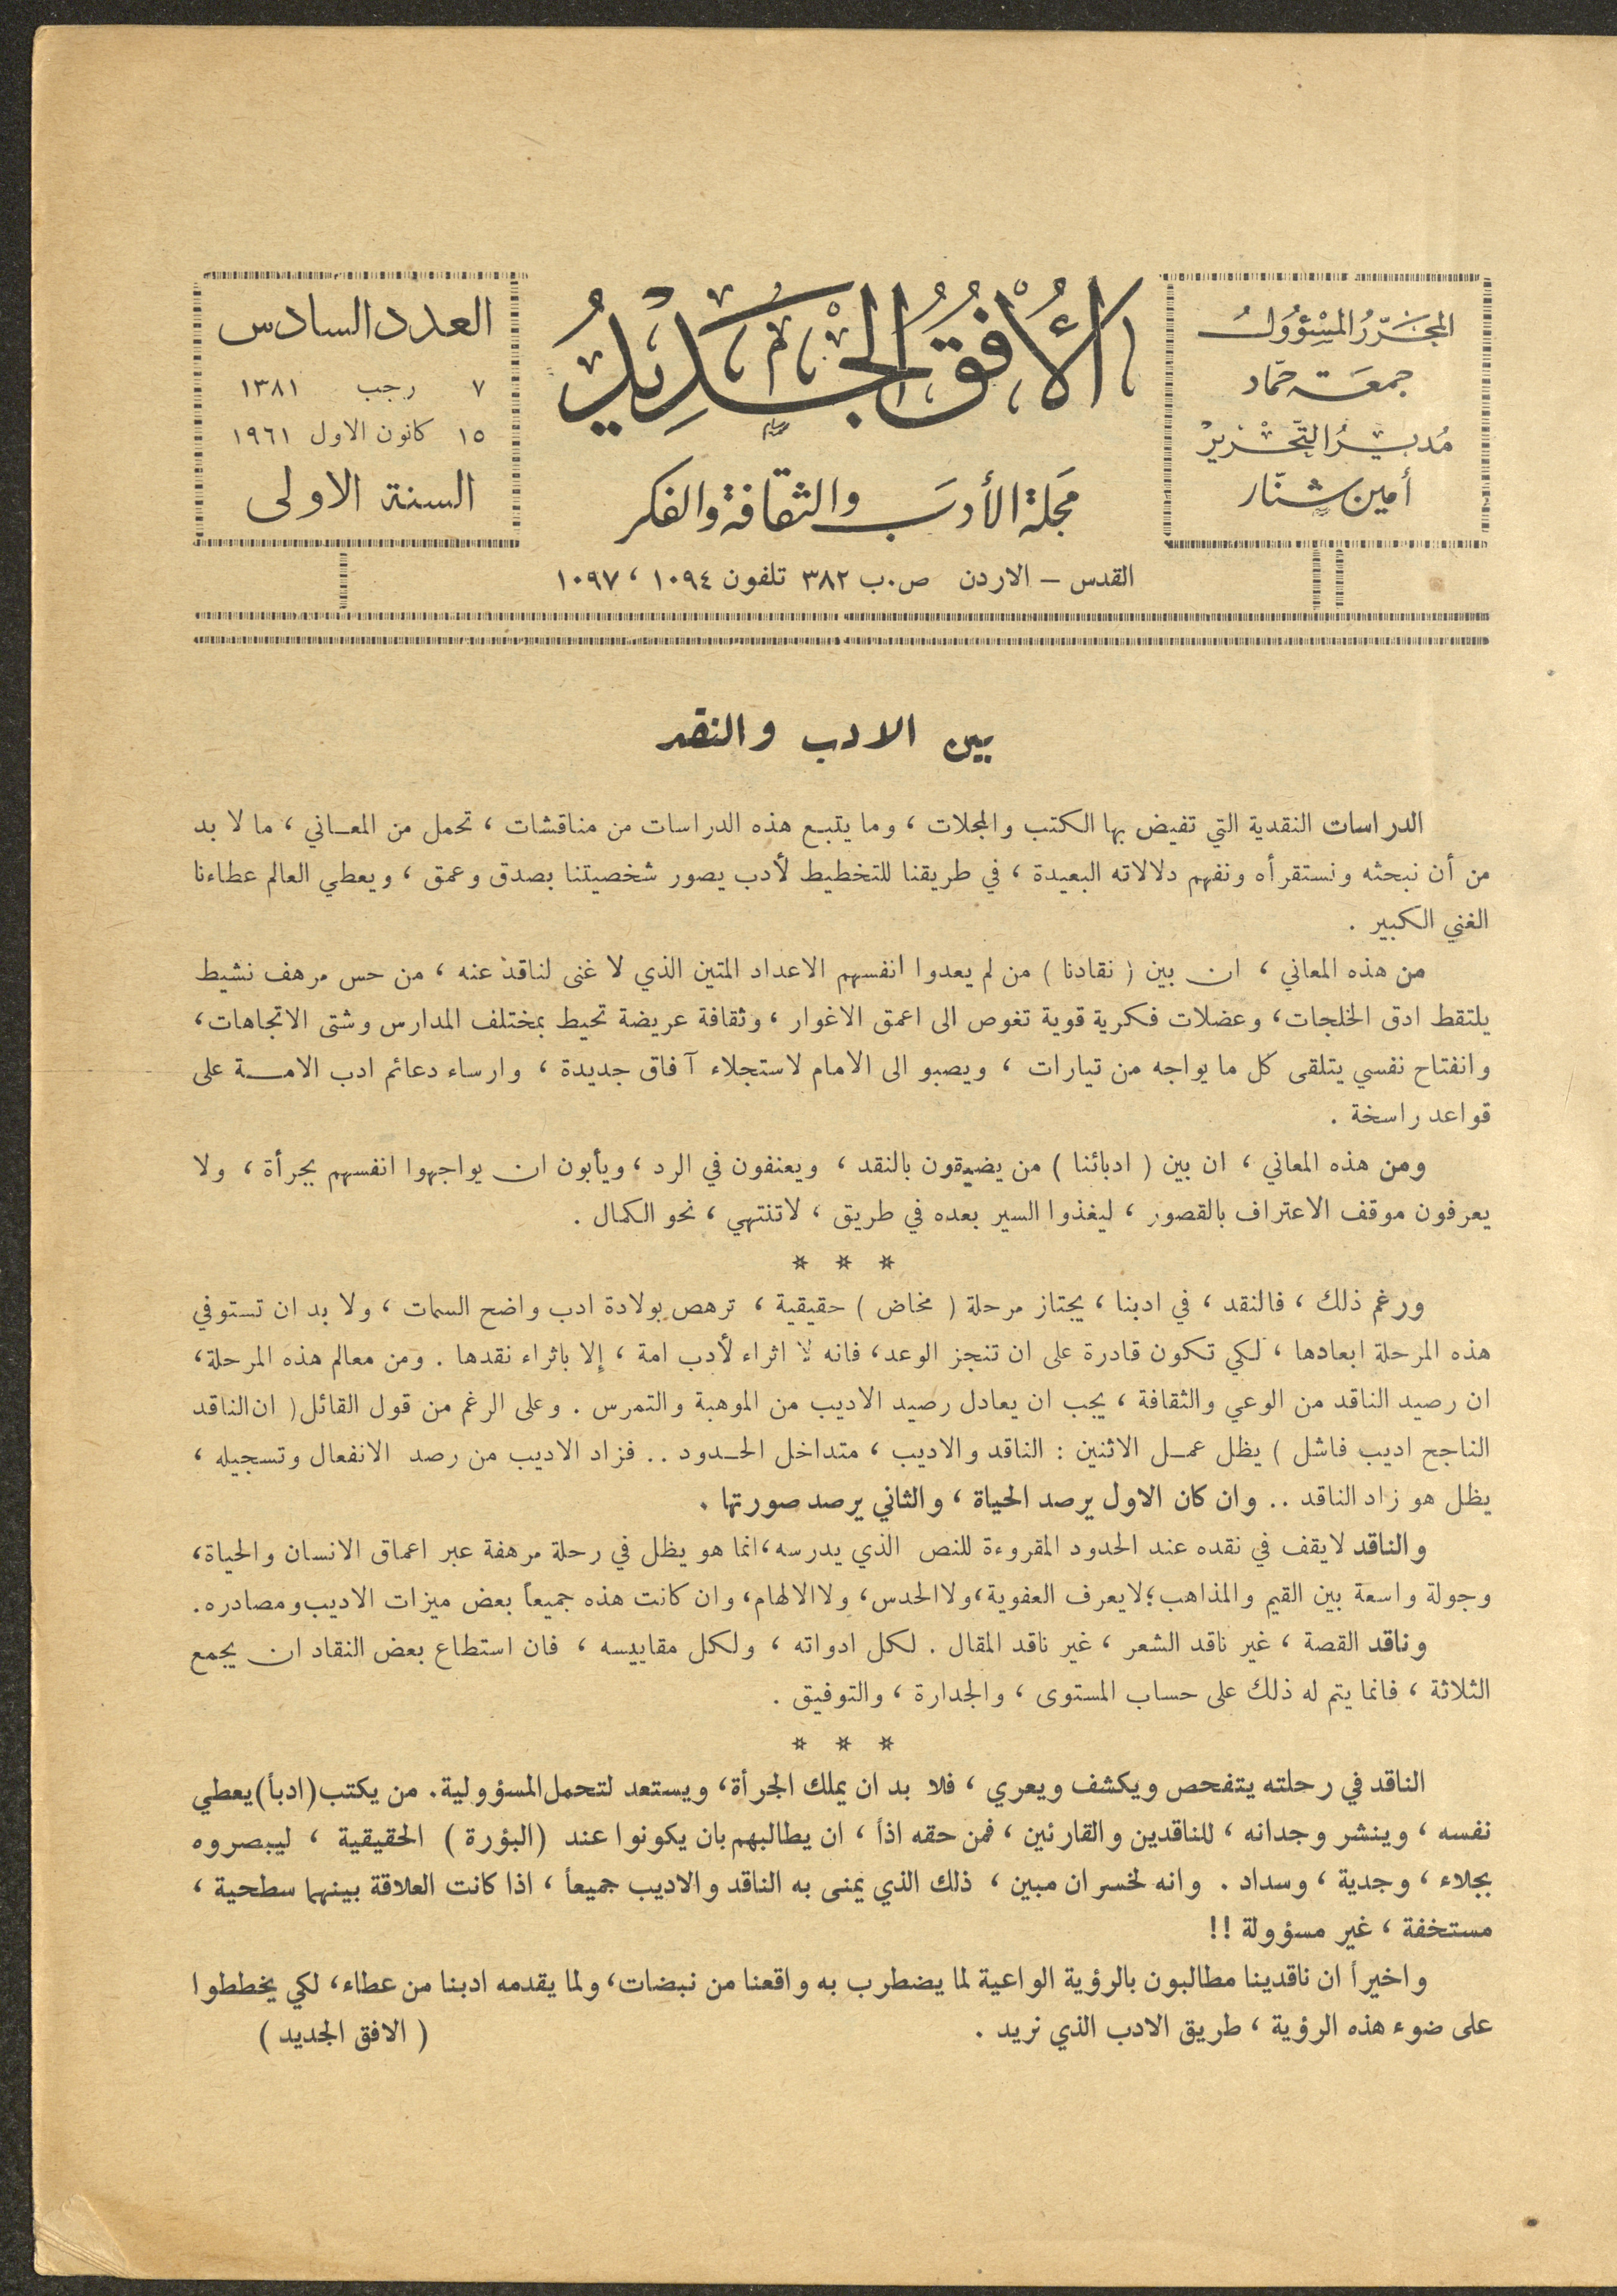 المحرر المسؤول
جمعة حماد
مدير التحرير
أمين شنار
الأفق الجديد
مجلة الأدب والثقافة والفكر
القدس – الاردن ص.ب ٣٨٢ تلفون ١٠٩٤ ، ١٠٩٧
العدد السادس
٧ رجب ١٣٨١
١٥ كانون الاول ١٩٦١
السنة الاولى
بين الادب والنقد
الدراسات النقدية التي تفيض بها الكتب والمجلات ، وما يتبع هذه الدراسات من مناقشات ، تحمل من المعاني ، ما لا بد
من أن نبحثه ونستقرأه ونفهم دلالاته البعيدة ، في طريقنا للتخطيط لأدب يصور شخصيتنا بصدق وعمق ، ويعطي العالم عطاءنا
الغني الكبير .
من هذه المعاني ، ان بين ( نقادنا ) من لم يعدوا انفسهم الاعداد المتين الذي لا غنى لناقد عنه ، من حس مرهف نشيط
يلتقط ادق الخلجات ، وعضلات فكرية قوية تغوص الى اعمق الاغوار ، وثقافة عريضة تحيط بمختلف المدارس وشتى الاتجاهات ،
وانفتاح نفسي يتلقى كل ما يواجه من تيارات ، ويصبو الى الامام لاستجلاء آفاق جديدة ، وارساء دعائم ادب الامة على
قواعد راسخة .
ومن هذه المعاني ، ان بين ( ادبائنا ) من يضيقون بالنقد ، ويعنفون في الرد ، ويأبون ان يواجهوا انفسهم بجرأة ، ولا
يعرفون موقف الاعتراف بالقصور ، ليغذوا السير بعده في طريق ، لاتنتهي ، نحو الكمال .
* * *
ورغم ذلك ، فالنقد ، في ادبنا ، يجتاز مرحلة ( مخاض ) حقيقية ، ترهص بولادة ادب واضح السمات ، ولا بد ان تستوفي
هذه المرحلة ابعادها ، لكي تكون قادرة على ان تنجز الوعد ، فانه لا اثراء لأدب امة ، إلا باثراء نقدها . ومن معالم هذه المرحلة ،
ان رصيد الناقد من الوعي والثقافة ، يجب ان يعادل رصيد الاديب من الموهبة والتمرس . وعلى الرغم من قول القائل ( ان الناقد
الناجح اديب فاشل ) يظل عمل الاثنين : الناقد والاديب ، متداخل الحدود .. فزاد الاديب من رصد الانفعال وتسجيله ،
يظل هو زاد الناقد .. وان كان الاول يرصد الحياة ، والثاني يرصد صورتها .
والناقد لايقف في نقده عند الحدود المقروءة للنص الذي يدرسه ، انما هو يظل في رحلة مرهفة عبر اعماق الانسان والحياة ،
وجولة واسعة بين القيم والمذاهب ؛ لايعرف العفوية ، ولا الحدس ، ولا الالهام ، وان كانت هذه جميعاً بعض ميزات الاديب ومصادره .
وناقد القصة ، غير ناقد الشعر ، غير ناقد المقال . لكل ادواته ، ولكل مقاييسه ، فان استطاع بعض النقاد ان يجمع
الثلاثة ، فانما يتم له ذلك على حساب المستوى ، والجدارة ، والتوفيق .
* * *
الناقد في رحلته يتفحص ويكشف ويعري ، فلا بد ان يملك الجرأة ، ويستعد لتحمل المسؤولية . من يكتب ( ادباً ) يعطي
نفسه ، وينشر وجدانه ، للناقدين والقارئين ، فمن حقه اذاً ، ان يطالبهم بان يكونوا عند ( البؤرة ) الحقيقية ، ليبصروه
بجلاء ، وجدية ، وسداد . وانه لخسران مبين ، ذلك الذي يمنى به الناقد والاديب جميعاً ، اذا كانت العلاقة بينهما سطحية ،
مستخفة ، غير مسؤولة !!
واخيراً ان ناقدينا مطالبون بالرؤية الواعية لما يضطرب به واقعنا من نبضات ، ولما يقدمه ادبنا من عطاء ، لكي يخططوا
على ضوء هذه الرؤية ، طريق الادب الذي نريد .
( الافق الجديد )